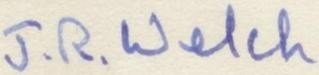 J.R. Welch